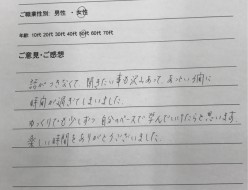 ご職業性別: 男性 ・ 女性
年齢: 10代 20代 30代 40代 50代 60代 70代
ご意見・ご感想
話がつきなくて、聞きたい事も沢山あって、あっという間に
時間が過ぎてしまいました。
ゆっくりでも少しずつ自分のペースで学んでいけたらと思います。
楽しい時間をありがとうございました。